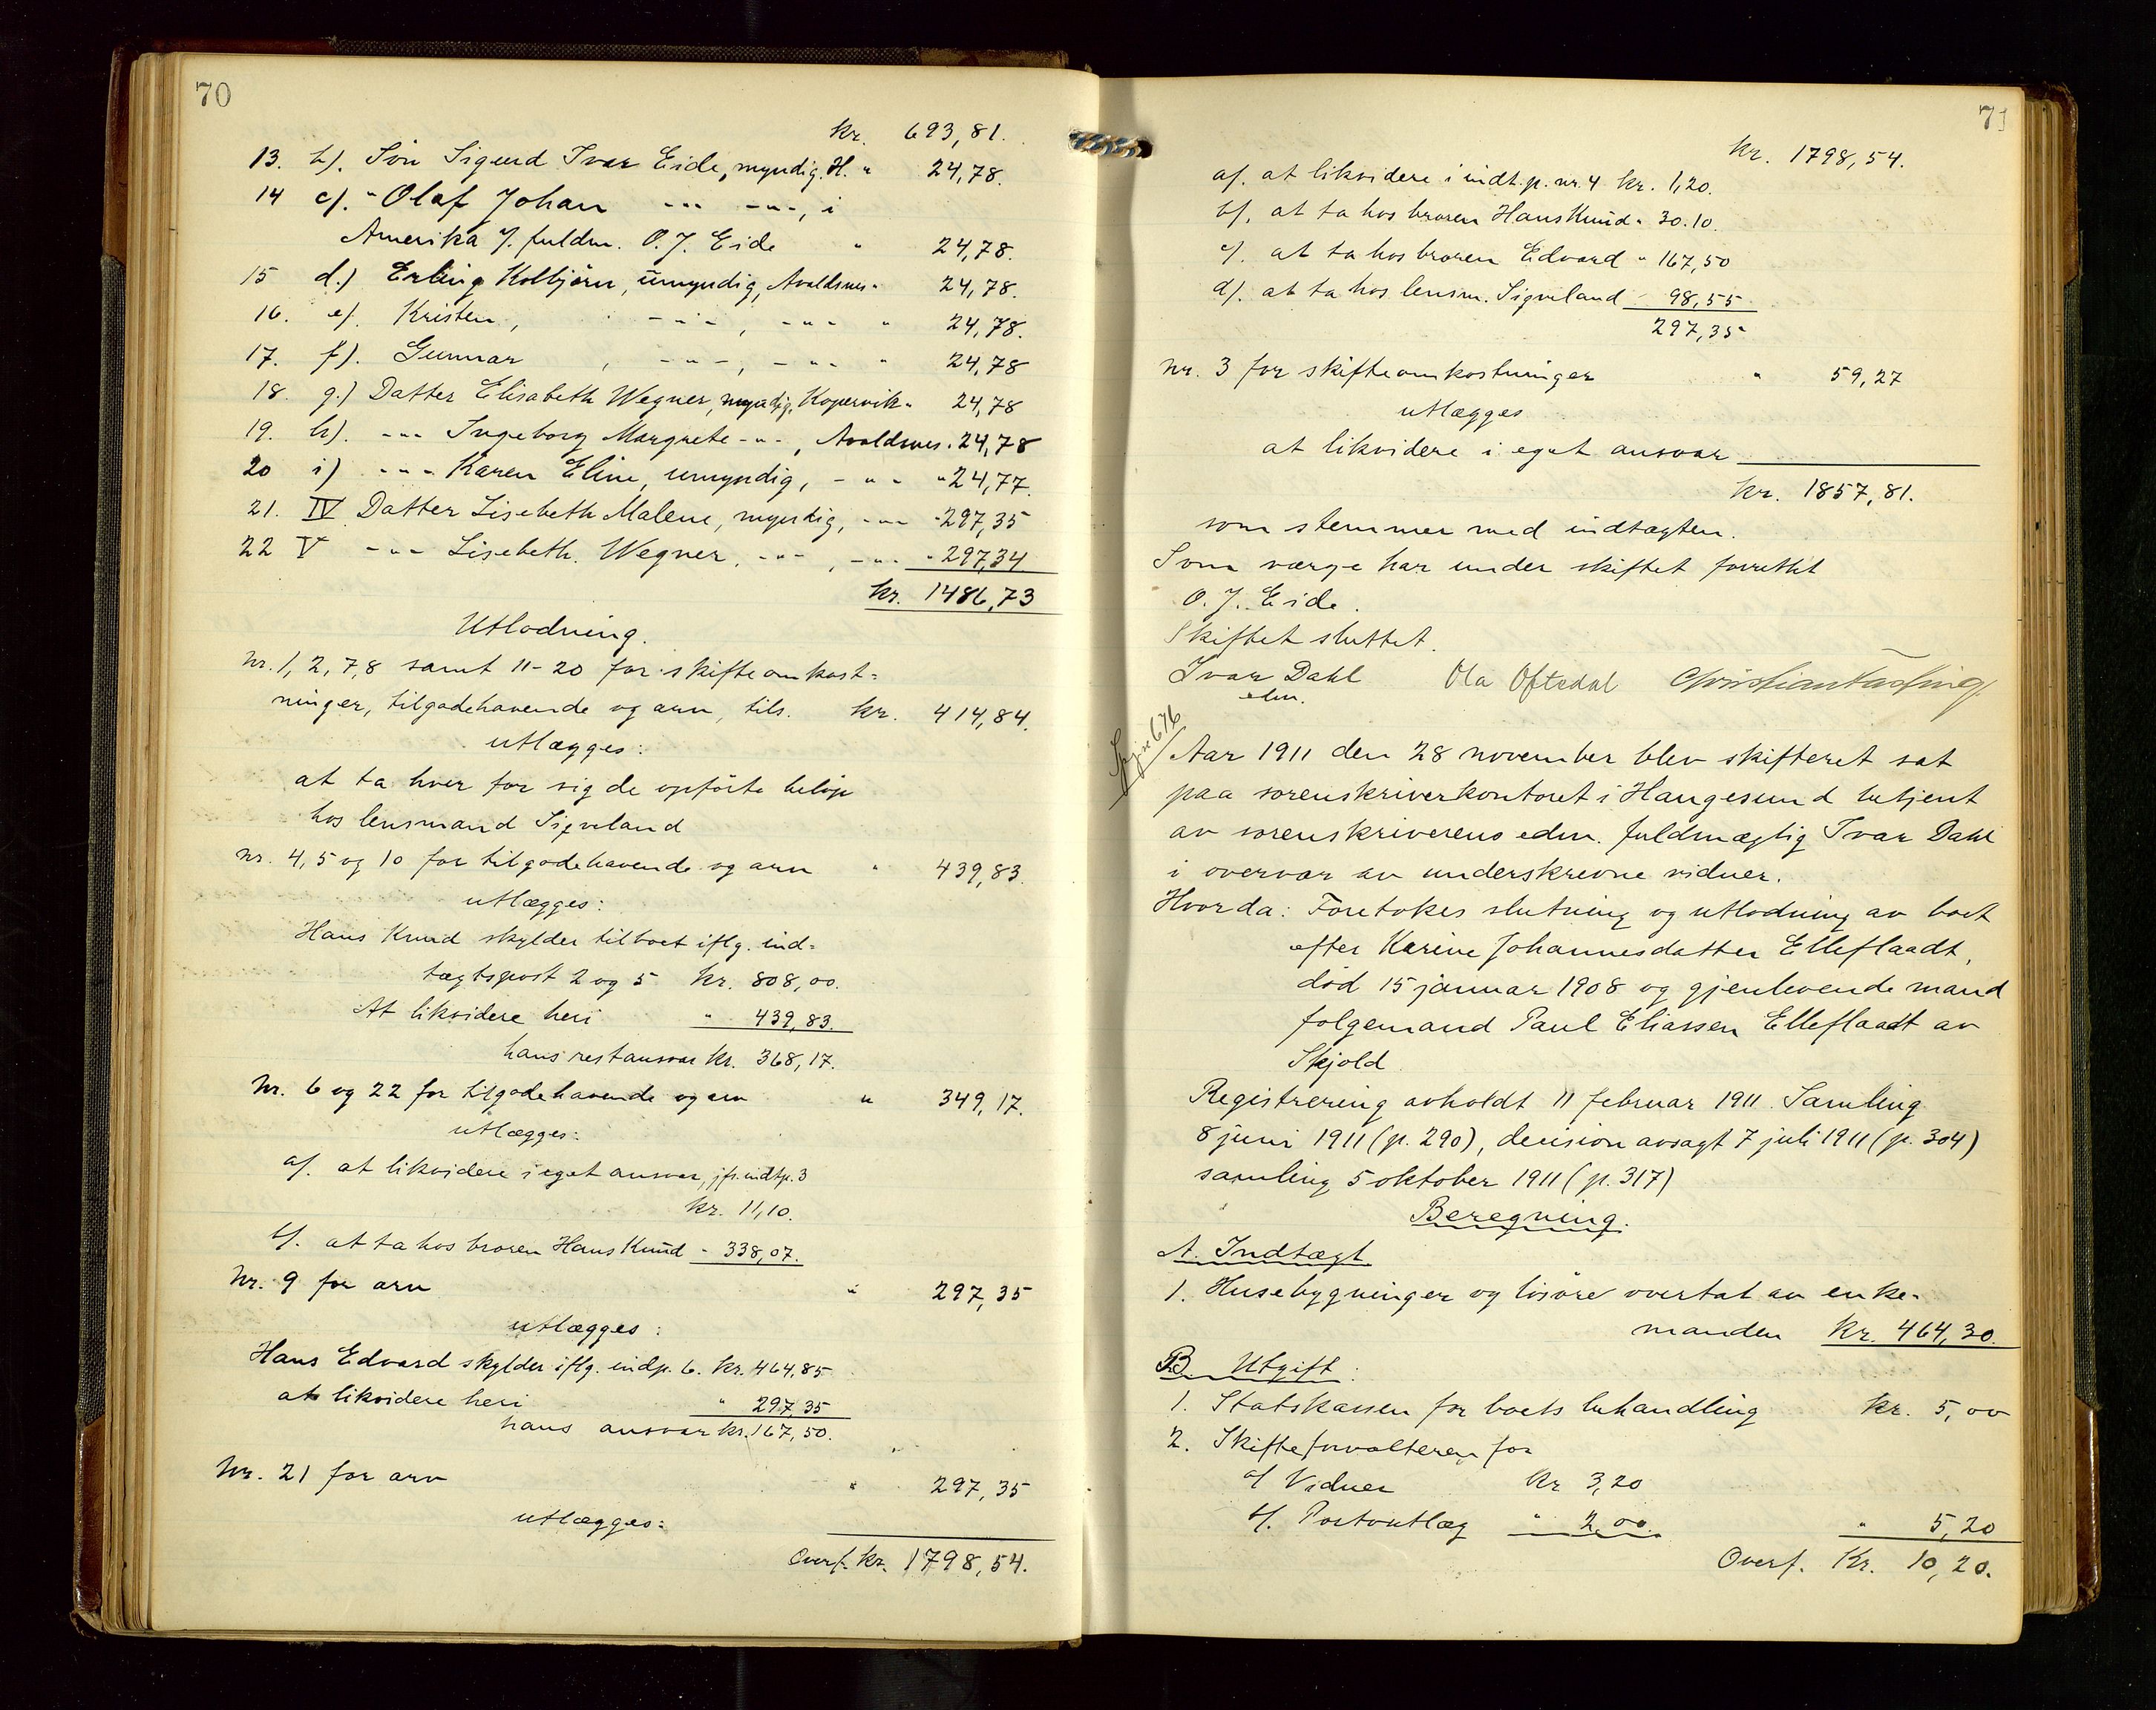 70
kr. 693,81.
13. b). Sön Sigurd Ivar Eide, myndig. H. " 24,78.
14 c). " Olaf Johan -"- -"-, i
Amerika f. fuldm. O. J. Eide " 24,78.
15 d.) Erling Kolbjörn, umyndig, Avaldsnes " 24,78.
16. e). Kristen, -"-, -"- " 24,78.
17. f). Gunnar, -"-, -"- " 24,78
18. g.) Datter Elisabeth Wegner, myndig, Kopervik " 24,78
19. h). -"- Ingeborg Margrete -"-, Avaldsnes " 24,78
20 i) -"- Karen Eline, umyndig, -"- " 24,77.
21. IV Datter Lisebeth Malene, myndig, -"- " 297,35
22 V -"- Lisebeth Wegner, -"-, -"- " 297,34
kr. 1486,73
Utlodning.
Nr. 1, 2, 7, 8 samt 11-20 for skifteomkost-
ninger, tilgodehavende og arv, tils. kr. 414,84.
utlægges:
at ta hver for sig de opförte belöp
hos lensmand Sigveland
nr. 4, 5 og 10 for tilgodehavende og arv " 439,83.
utlægges:
Hans Knud skylder til boet iflg. ind-
tægtspost 2 og 5 kr. 808,00.
At likvidere heri " 439,83.
hans restansvar kr. 368,17.
Nr. 6 og 22 for tilgodehavende og arv " 349,17.
utlægges:
a). at likvidere i eget ansvar, jfr. indtp. 3
kr. 11,10.
b). at ta hos broren Hans Knud " 338,07.
Nr. 9 for arv " 297,35
utlægges:
Hans Edvard skylder iflg. indp. 6. kr. 464,85
at likvidere heri " 297,35
hans ansvar kr. 167,50.
Nr. 21 for arv " 297,35
utlægges:
Overf. kr. 1798,54.
71
kr. 1798,54.
a). at likvidere i indt.p. nr. 4 kr. 1,20.
b). at ta hos broren Hans Knud " 30.10.
c). at ta hos broren Edvard " 167,50
d). at ta hos lensm. Sigveland 98,55
297,35
nr. 3 for skifteomkostninger " 59,27
utlægges
at likvidere i eget ansvar
kr. 1857,81.
som stemmer med indtægten.
Som værge har under skiftet forrettet
O. J. Eide.
Skiftet sluttet.
Ivar Dahl Ola Oftedal
edm.
676
Aar 1911 den 28 november blev skifteret sat
paa sorenskriverkontoret i Haugesund betjent
av sorenskriverens edsv. fuldmægtig Ivar Dahl
i overvær av underskrevne vidner.
Hvorda: Foretokes slutning og utlodning av boet
efter Karine Johannesdatter Elleflaadt,
död 15 januar 1908 og gjenlevende mand
folgemand Paul Eliassen Elleflaadt av
Skjold
Registrering avholdt 11 februar 1911. Samling
8 juni 1911 (p. 290), decision avsagt 7 juli 1911 (p. 304)
samling 5 oktober 1911 (p. 317)
Beregning.
A. Indtægt
1. Husebygninger og lösöre overtat av enke-
manden kr. 464,30.
B. Utgift:
1. Statskassen for boets behandling kr. 5,00
2. Skifteforvalteren for
a/ Vidner kr 3,20
b/. Portoutlæg " 2,00. " 5,20
Overf. Kr. 10,20.